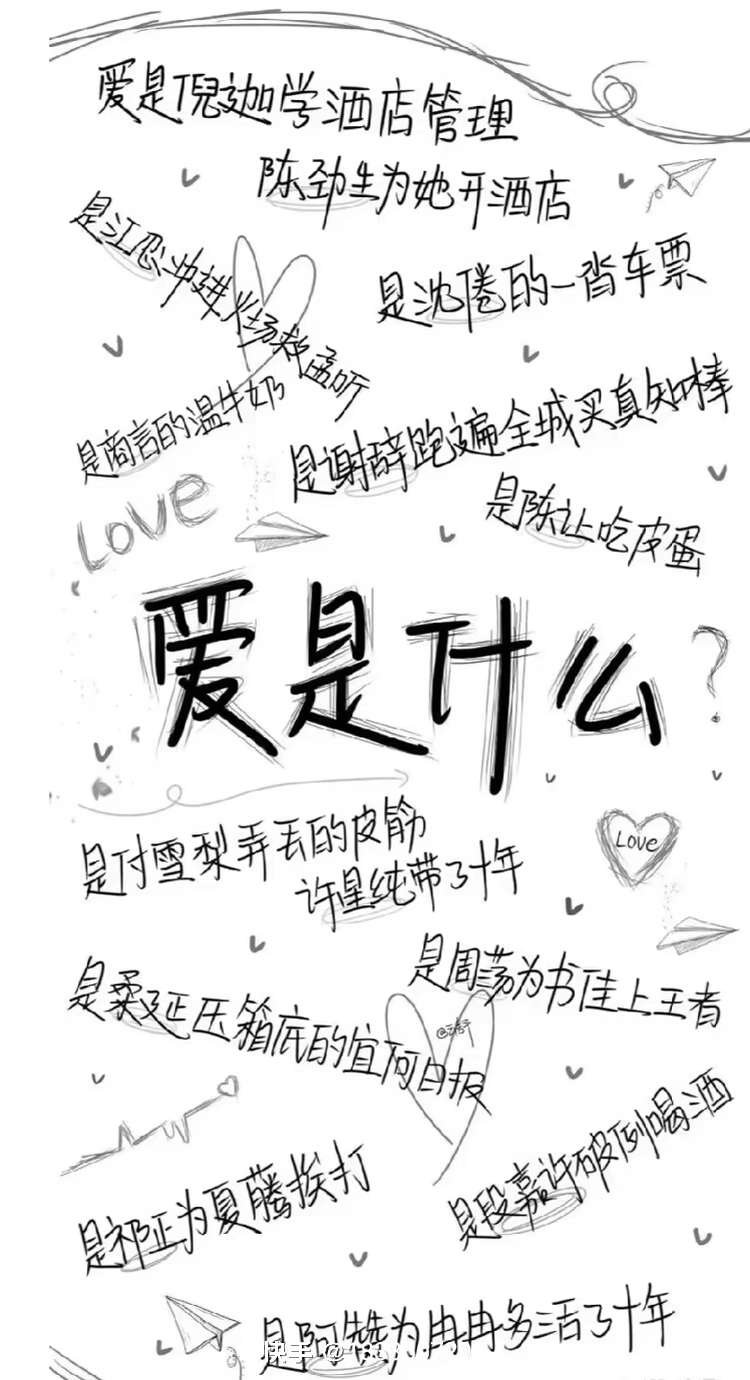 爱是倪迦学酒店管理
陈劲生为她开酒店
是江忍冲进火场救孟听
是沈倦的一沓车票
是商言的温牛奶
是谢辞跑遍全城买真知棒
LOVE
是陈让吃皮蛋
爱是什么?
是付雪梨弄丢的皮筋
许星纯带了十年
LOVE
是周荡为书佳上王者
是柔延压箱底的宜河日报
是段嘉许破例喝酒
是祁正为夏藤挨打
是阿赞为冉冉多活了十年
快手